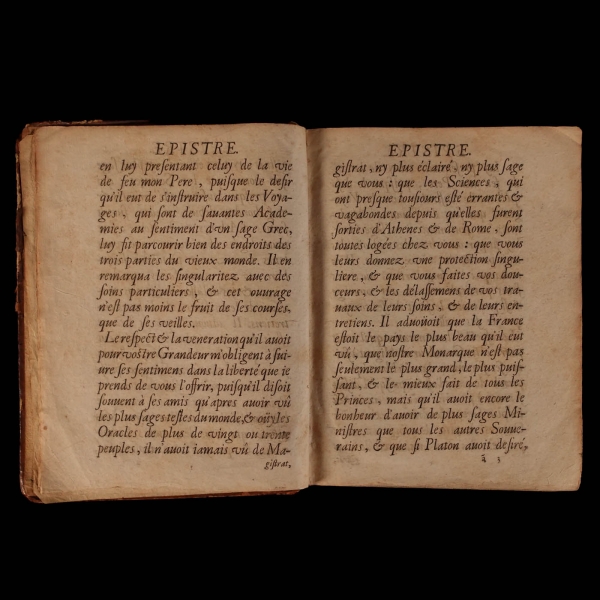 EPISTRE.
en luy presentant celuy de la vie
de feu mon Pere, puisque le desir
qu'il eut de s'instruire dans les Voya-
ges, qui sont de sauantes Acade-
mies au sentiment d'vn sage Grec,
luy fit parcourir bien des endroits des
trois parties du vieux monde. Il en
remarqua les singularitez auec des
soins particuliers, & cet ouurage
n'est pas moins le fruit de ses courses,
que de ses veilles.
Le respect & la veneration qu'il auoit
pour vostre Grandeur m'obligent à sui-
ure ses sentimens dans la liberté que ie
prends de vous l'offrir, puisqu'il disoit
souuent à ses amis qu'apres auoir vû
les plus sages testes du monde, & oüy les
Oracles de plus de vingt ou trente
peuples, il n'auoit iamais vû de Ma-
gistrat,
EPISTRE.
gistrat, ny plus éclairé, ny plus sage
que vous : que les Sciences, qui
ont presque tousiours esté errantes &
vagabondes depuis qu'elles furent
sorties d'Athenes & de Rome, sont
toutes logées chez vous : que vous
leurs donnez vne protection singu-
liere, & que vous faites vos dou-
ceurs, & les délassemens de vos tra-
uaux de leurs soins, & de leurs en-
tretiens. Il aduoüoit que la France
estoit le pays le plus beau qu'il eut
vû, que nostre Monarque n'est pas
seulement le plus grand, le plus puis-
sant, & le mieux fait de tous les
Princes, mais qu'il auoit encore le
bonheur d'auoir de plus sages Mi-
nistres que tous les autres Souue-
rains, & que si Platon auoit desiré,
ã 3